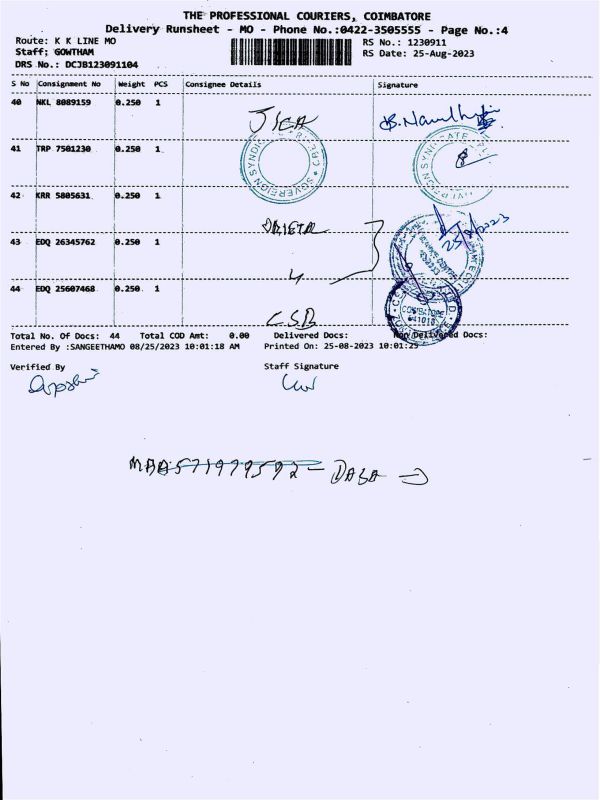 THE PROFESSIONAL COURIERS, COIMBATORE
Delivery Runsheet - MO - Phone No.:0422-3505555 - Page No.:4
Route: K K LINE MO RS No.: 1230911
Staff: GOWTHAM RS Date: 25-Aug-2023
DRS No.: DCJB123091104
S No Consignment No Weight PCS Consignee Details Signature
40 NKL 8089159 0.250 1
41 TRP 7501230 0.250 1
SOVEREIGN SYNDICATE
42 KRR 5805631 0.250 1
25/8/2023
43 EDQ 26345762 0.250 1
44 EDQ 25607468 0.250 1
COIMBATORE
641018
CSB
Total No. Of Docs: 44 Total COD Amt: 0.00 Delivered Docs: Non Delivered Docs:
Entered By :SANGEETHAMO 08/25/2023 10:01:18 AM Printed On: 25-08-2023 10:01:29
Verified By Staff Signature